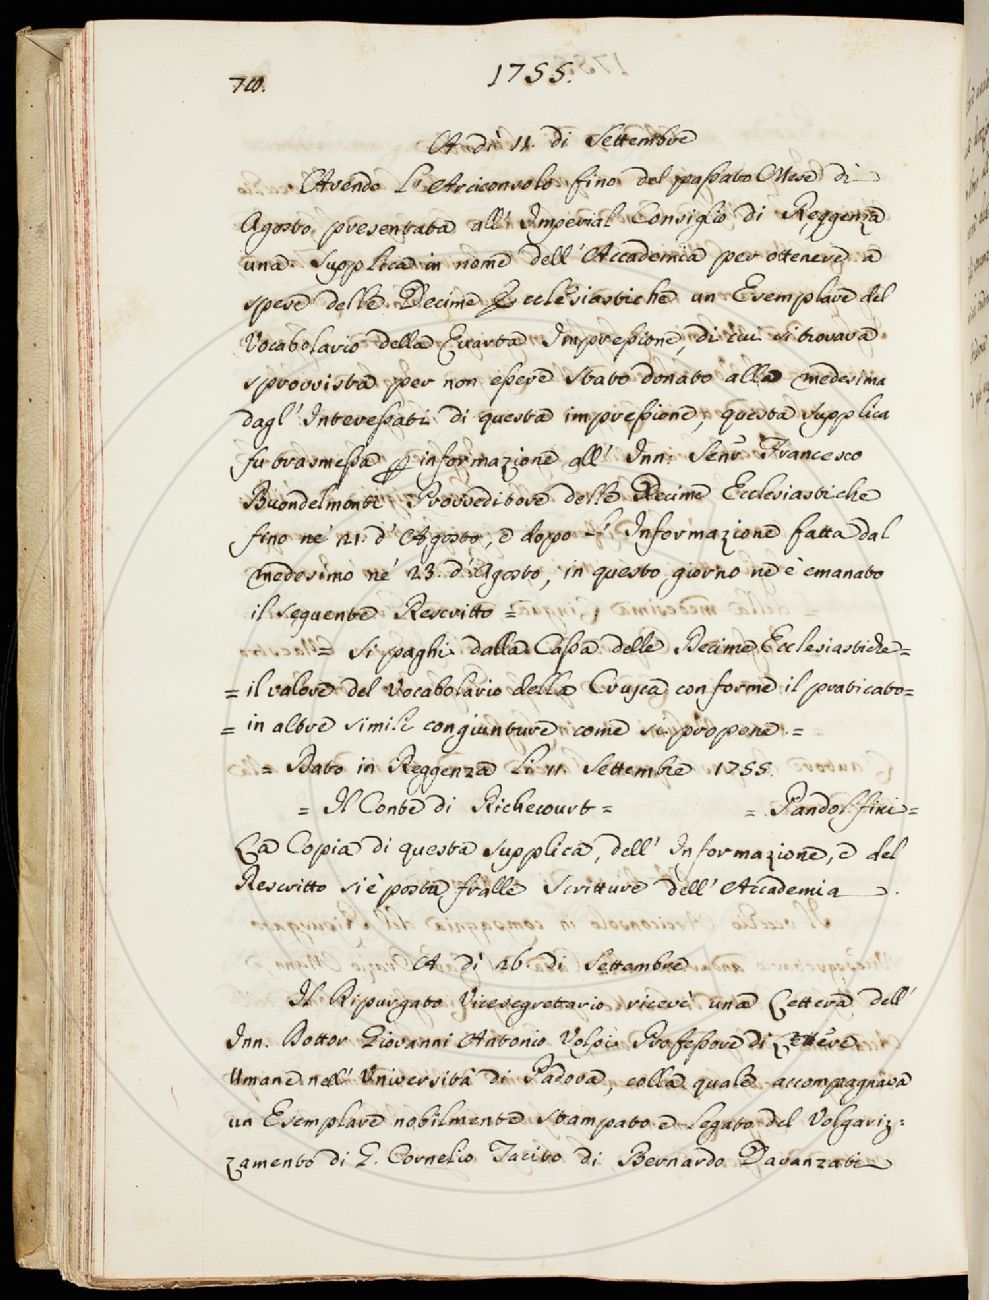 1755.
A dì 11. di Settembre
Avendo L'Arciconsolo fino del passato Mese di
Agosto presentata all'Imperial Consiglio di Reggenza
una Supplica in nome dell'Accademia per ottenere a
spese delle Decime Ecclesiastiche un Esemplare del
Vocabolario della Quarta Impressione, di cui si trovava
sprovvista per non essere stato donato alla medesima
dagl'Interessati di questa impressione, questa supplica
fu trasmessa p informazione all'Inn: Senr Francesco
Buondelmonti Provveditore delle Decime Ecclesiastiche
fino ne' 21. d'Agosto, e dopo l'Informazione fatta dal
medesimo ne' 23. d'Agosto, in questo giorno ne è emanato
il seguente Rescritto =
= Si paghi dalla Cassa delle Decime Ecclesiastiche =
= il valore del Vocabolario della Crusca conforme il praticato =
= in altre simili congiunture come si propone =
= Dato in Reggenza Li 11 Settembre 1755.
= Il Conte di Richecourt = = Pandolfini =
La Copia di questa supplica, dell'Informazione, e del
Rescritto si è posta fralle Scritture dell'Accademia.
A dì 26 di Settembre
Il Ripurgato Vicesegretario ricevè una Lettera dell'
Inn. Dottor Giovanni Antonio Volpi Professore di Lettere
Umane nell'Università di Padova, colla quale accompagnava
un Esemplare nobilmente stampato e legato del Volgariz:
zamento di G. Cornelio Tacito di Bernardo Davanzati